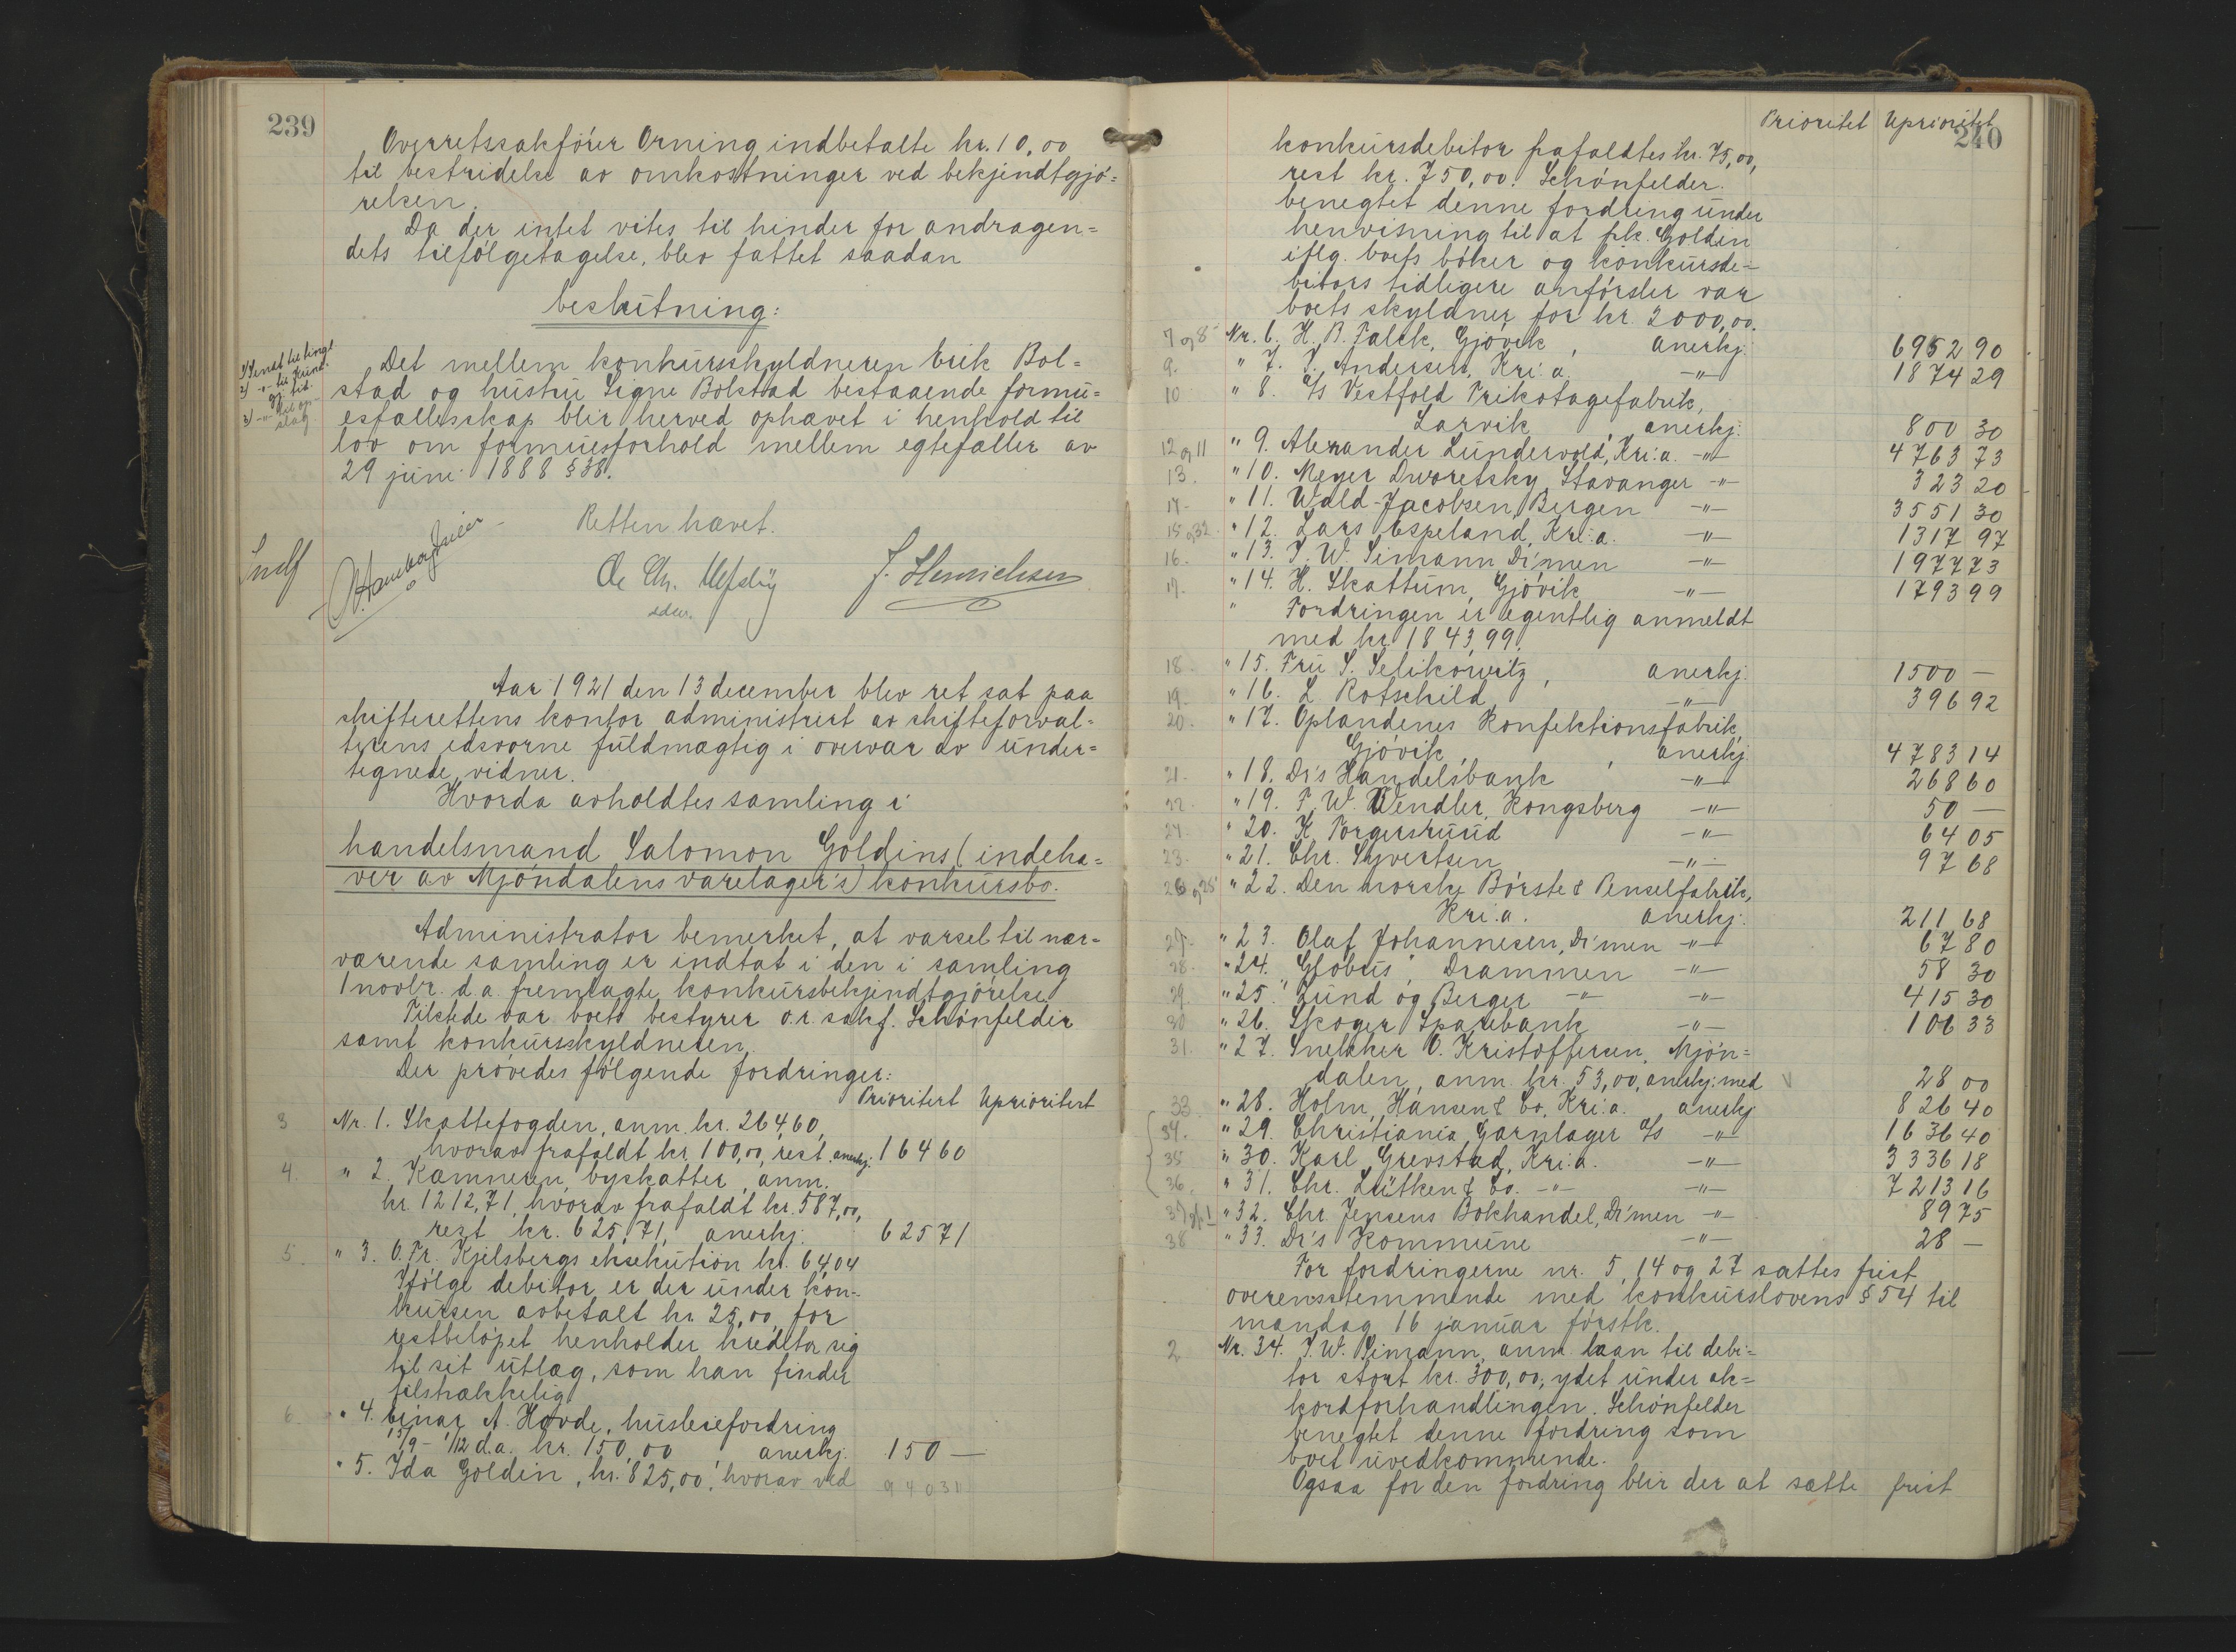 239
Overretssakfører Orning indbetalte kr. 10,00
til bestridelse av omkostninger ved bekjendtgjø=
relsen.
Da der intet vites til hinder for andragen=
dets tilfølgetagelse, blev fattet saadan
beslutning:
1) Sendt til tingl.
2) -"- til Kund.
gj. tid.
3) -"- til op-
slag.
Det mellem konkursskyldneren Erik Bol=
stad og hustru Signe Bolstad bestaaende formu=
esfællesskap blir herved ophævet i henhold til
lov om formuesforhold mellem egtefæller av
29 juni 1888 § 38.
Retten hævet.
J. Henrichsen
edsv.
Aar 1921 den 13 december blev ret sat paa
skifterettens kontor administrert av skifteforval=
terens edsvorne fuldmægtig i overvær av under=
tegnede vidner.
Hvorda avholdtes samling i
handelsmand Salomon Goldins (indeha=
ver av Mjøndalens varelager's) konkursbo.
Administrator bemerket, at varsel til nær=
værende samling er indtat i den i samling
1 novbr. d.a. fremlagte konkursbekjendtgjørelse.
Tilstede var boets bestyrer o.r. sakf. Schønfelder
samt konkursskyldneren.
Der prøvedes følgende fordringer:
Prioritert Uprioritert
3 Nr. 1. Skattefogden, anm. kr. 264,60,
hvorav frafaldt kr. 100,00, rest anerkj. 164 60
4. " 2. Kæmneren, byskatter, anm.
kr. 1212,71, hvorav frafaldt kr. 587,00,
rest kr. 625,71, anerkj. 625 71
5. " 3. O. Fr. Kjelsbergs eksekution kr. 64,04
Ifølge debitor er der under kon-
kursen avbetalt kr. 25,00, for
restbeløpet henholder kreditor sig
til sit utlæg, som han finder
tilstrækkelig
6. " 4. Einar A. Hovde, husleiefordring
15/9 - 1/12 d.a. kr. 150,00 anerkj. 150 —
" 5. Ida Goldin, kr. 825,00, hvorav ved
940 31
240
Prioritet Uprioritet
konkursdebitor frafaldtes kr. 75,00,
rest kr. 750,00. Schønfelder
benegtet denne fordring under
henvisning til at frk. Goldin
iflg. boets bøker og konkursde=
bitors tidligere anførsler var
boets skyldner for kr. 2000,00.
7 og 8 Nr. 6. H. B. Falck, Gjøvik, anerkj. 6952 90
9. " 7. J. Andersen, Kri:a. -"- 1874 29
10 " 8. A/s Vestfold Trikotagefabrik,
Larvik, anerkj. 800 30
12 og 11 " 9. Alexander Lundervold, Kri:a. -"- 4763 73
13. " 10. Meyer Dworetsky, Stavanger -"- 323 20
14. " 11. Wald-Jacobsen, Bergen -"- 3551 30
15 og 32. " 12. Lars Espeland, Kri:a. -"- 1317 97
16. " 13. J. W. Simann Dr'men -"- 1977 73
17. " 14. H. Skattum, Gjøvik -"- 1793 99
" Fordringen er egentlig anmeldt
med kr. 1843,99.
18. " 15. Fru S. Selikowitz, anerkj. 1500 —
19. " 16. L. Rotschild, -"- 396 92
20. " 17. Oplandenes Konfektionsfabrik,
Gjøvik, anerkj. 4783 14
21. " 18. Dr's Handelsbank -"- 268 60
22. " 19. F. W. Wendler, Kongsberg -"- 50 —
24. " 20. K. Torgersruud -"- 64 05
23. " 21. Chr. Syvertsen -"- 97 68
26 og 25 " 22. Den norske Børste & Penselfabrik,
Kri:a. anerkj. 211 68
27. " 23. Olaf Johannesen, Dr'men -"- 67 80
28. " 24. "Globus", Drammen -"- 58 30
29. " 25. Lund og Berger -"- -"- 415 30
30 " 26. Skoger Sparebank -"- 106 33
31. " 27. Snekker O. Kristoffersen, Mjøn=
dalen, anm. kr. 53,00, anerkj. med 28 00
33. " 28. Holm, Hansen & Co, Kri:a. anerkj. 826 40
34. " 29. Christiania Garnlager A/s -"- 1636 40
35 " 30. Karl Grevstad, Kri:a. -"- 3336 18
36. " 31. Chr. Lütken & Co. -"- -"- 7213 16
37 " 32. Chr. Jensens Bokhandel, Dr'men -"- 89 75
38 " 33. Dr's Kommune -"- 28 —
For fordringerne nr. 5, 14 og 27 sattes frist
overensstemmende med konkurslovens § 54 til
mandag 16 januar førstk.
2 Nr. 34. J. W. Simann, anm. laan til debi=
tor stort kr. 300,00, ydet under ak=
kordforhandlingen. Schønfelder
benegtet denne fordring som
boet uvedkommende.
Ogsaa for den fordring blir der at sætte frist